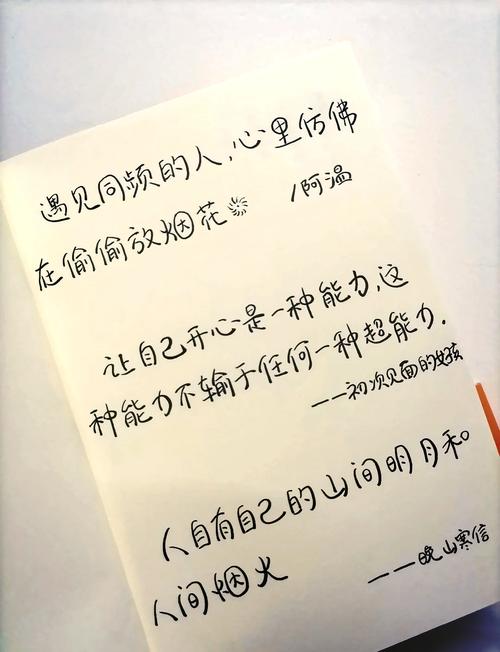 遇见同频的人，心里仿佛
在偷偷放烟花 /阿温
让自己开心是一种能力，这
种能力不输于任何一种超能力．
——初次见面的女孩
人自有自己的山间明月和
人间烟火 ——晚山寒信